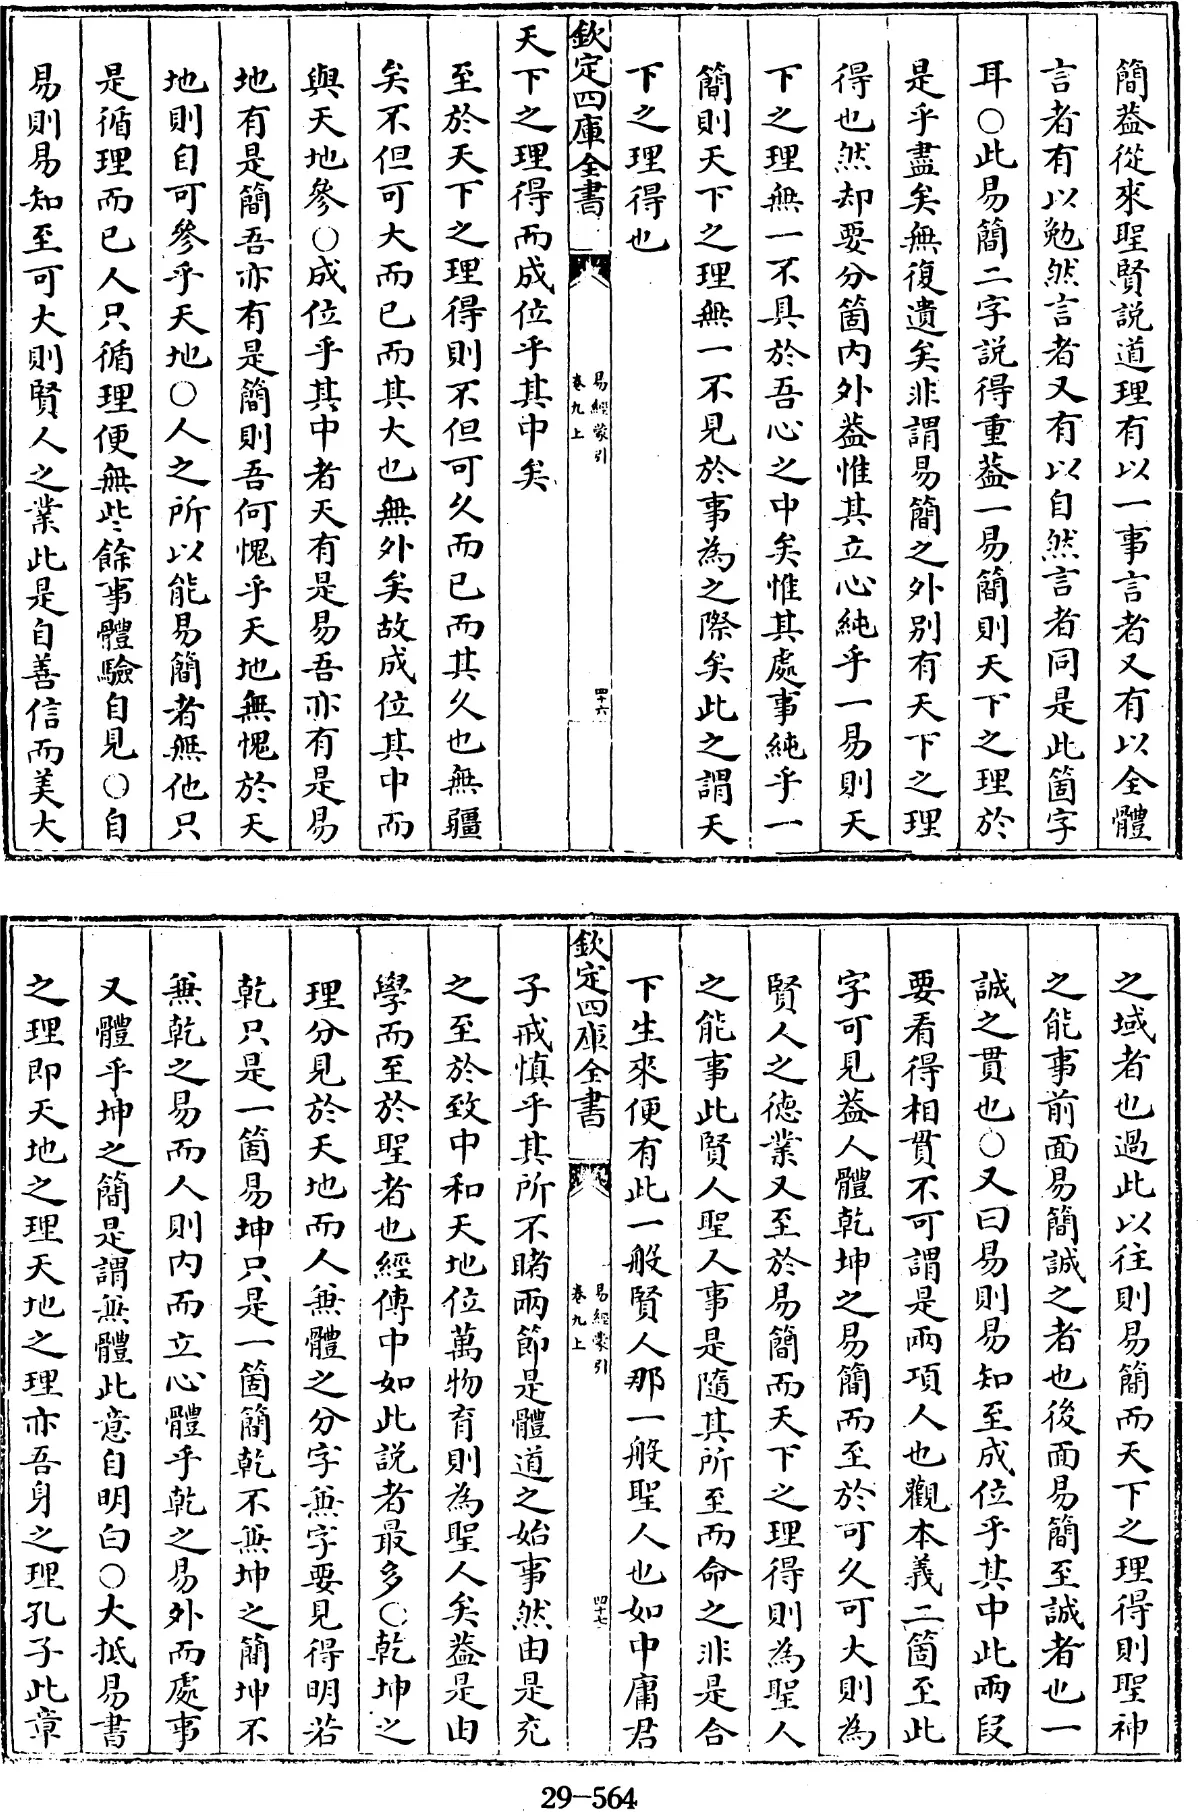 簡葢從來聖賢説道理有以一事言者又有以全體
言者有以勉然言者又有以自然言者同是此箇字
耳○此易簡二字説得重葢一易簡則天下之理於
是乎盡矣無復遺矣非謂易簡之外别有天下之理
得也然却要分箇内外葢惟其立心純乎一易則天
下之理無一不具於吾心之中矣惟其處事純乎一
簡則天下之理無一不見於事為之際矣此之謂天
下之理得也
欽定四庫全書
易經蒙引
卷九上
四十六
天下之理得而成位乎其中矣
至於天下之理得則不但可久而已而其久也無疆
矣不但可大而已而其大也無外矣故成位其中而
與天地參○成位乎其中者天有是易吾亦有是易
地有是簡吾亦有是簡則吾何愧乎天地無愧於天
地則自可參乎天地○人之所以能易簡者無他只
是循理而已人只循理便無些餘事體驗自見○自
易則易知至可大則賢人之業此是自善信而美大
之域者也過此以往則易簡而天下之理得則聖神
之能事前面易簡誠之者也後面易簡至誠者也一
誠之貫也○又曰易則易知至成位乎其中此兩段
要看得相貫不可謂是兩項人也觀本義二箇至此
字可見葢人體乾坤之易簡而至於可久可大則為
賢人之德業又至於易簡而天下之理得則為聖人
之能事此賢人聖人事是隨其所至而命之非是合
下生來便有此一般賢人那一般聖人也如中庸君
欽定四庫全書
易經蒙引
卷九上
四十七
子戒慎乎其所不睹兩節是體道之始事然由是充
之至於致中和天地位萬物育則為聖人矣葢是由
學而至於聖者也經傳中如此説者最多○乾坤之
理分見於天地而人兼體之分字兼字要見得明若
乾只是一箇易坤只是一箇簡乾不兼坤之簡坤不
兼乾之易而人則内而立心體乎乾之易外而處事
又體乎坤之簡是謂兼體此意自明白○大抵易書
之理即天地之理天地之理亦吾身之理孔子此章
29-564